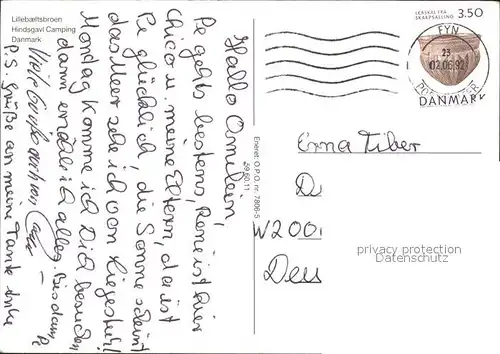 Lillebæltsbroen
Hindsgavl Camping
Danmark
Hallo Omilein,
Pe gehts bestens, René ist hier
Chico u. meine Eltern, da ist
Pe glücklich, die Sonne scheint
das Meer sehe ich vom Liegestuhl
Montag komme ich Dich besuchen
dann erzähl ich alles. Bis dann
Viele Grüße auch von
P.S. Grüße an meine Tante Anke
Eneret: O.P.O. nr. 7806-5
59.60.11
LERSKÅL FRA
SKARPSALLING
3.50
FYN
23
02.06.92
DANMARK
Erna Tiber
D
W 200
Deu
privacy protection
Datenschutz